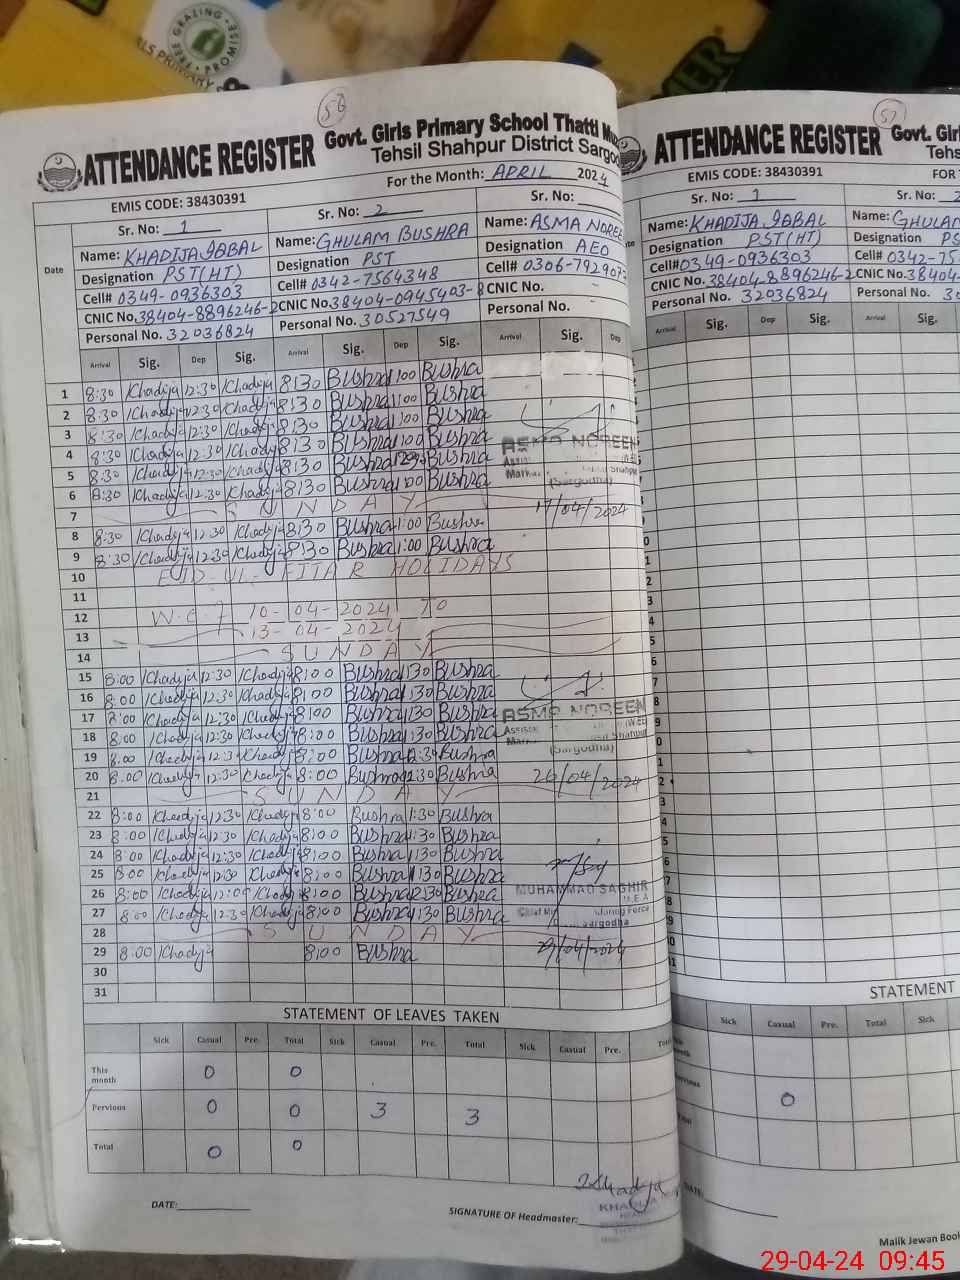 FREE GRAZING
PROMISE
LS PRIMARY
58
57
ATTENDANCE REGISTER
Govt. Girls Primary School Thatti
Tehsil Shahpur District Sargo
EMIS CODE: 38430391
For the Month: APRIL 2024
Sr. No: 1 Sr. No: 2 Sr. No:
Date
Name: KHADIJA IQBAL Name: GHULAM BUSHRA Name: ASMA NOREE
Designation PST(HT) Designation PST Designation AEO
Cell# 0349-0936303 Cell# 0342-7564348 Cell# 0306-792907
CNIC No. 38404-8896246-2 CNIC No. 38404-0945403-8 CNIC No. -
Personal No. 32036824 Personal No. 30527549 Personal No. -
Arrival Sig. Dep Sig. Arrival Sig. Dep Sig. Arrival Sig. Dep
1 8:30 Khadija 12:30 Khadija 8:30 Bushra 1:00 Bushra
2 8:30 Khadija 12:30 Khadija 8:30 Bushra 1:00 Bushra
3 8:30 Khadija 12:30 Khadija 8:30 Bushra 1:00 Bushra
4 8:30 Khadija 12:30 Khadija 8:30 Bushra 1:00 Bushra
5 8:30 Khadija 12:30 Khadija 8:30 Bushra Bushra
6 8:30 Khadija 12:30 Khadija 8:30 Bushra 1:00 Bushra
ASMA NOREEN
(Sargodha)
7 SUNDAY 17/04/2024
8 8:30 Khadija 12:30 Khadija 8:30 Bushra 1:00 Bushra
9 8:30 Khadija 12:30 Khadija 8:30 Bushra 1:00 Bushra
10 EID-UL-FITAR HOLIDAYS
11
12 W.e.f 10-04-2024 TO
13 13-04-2024
14 SUNDAY
15 8:00 Khadija 12:30 Khadija 8:00 Bushra 1:30 Bushra
16 8:00 Khadija 12:30 Khadija 8:00 Bushra 1:30 Bushra
17 8:00 Khadija 12:30 Khadija 8:00 Bushra 1:30 Bushra
18 8:00 Khadija 12:30 Khadija 8:00 Bushra 1:30 Bushra
19 8:00 Khadija 12:30 Khadija 8:00 Bushra 12:30 Bushra
20 8:00 Khadija 12:30 Khadija 8:00 Bushra 12:30 Bushra
ASMA NOREEN
(Sargodha)
26/04/2024
21 SUNDAY
22 8:00 Khadija 12:30 Khadija 8:00 Bushra 1:30 Bushra
23 8:00 Khadija 12:30 Khadija 8:00 Bushra 1:30 Bushra
24 8:00 Khadija 12:30 Khadija 8:00 Bushra 1:30 Bushra
25 8:00 Khadija 12:30 Khadija 8:00 Bushra 1:30 Bushra
26 8:00 Khadija 12:00 Khadija 8:00 Bushra 12:30 Bushra
27 8:00 Khadija 12:30 Khadija 8:00 Bushra 1:30 Bushra
MUHAMMAD SAGHIR
M.E.A
Sargodha
28 SUNDAY
29 8:00 Khadija 8:00 Bushra 29/04/2024
30
31
STATEMENT OF LEAVES TAKEN
Sick Casual Pre. Total Sick Casual Pre. Total Sick Casual Pre. Total
This month 0 0
Pervious 0 0 3 3
Total 0 0
DATE:
SIGNATURE OF Headmaster:
Khadija
ATTENDANCE REGISTER
Govt. Girl
Tehs
EMIS CODE: 38430391
FOR
Sr. No: 1 Sr. No: 2
Name: KHADIJA IQBAL Name: GHULAM
Designation PST(HT) Designation PS
Cell# 0349-0936303 Cell# 0342-75
CNIC No. 38404-8896246-2 CNIC No. 38404-
Personal No. 32036824 Personal No. 30
Arrival Sig. Dep Sig. Arrival Sig.
STATEMENT
Sick Casual Pre. Total Sick
0
DATE:
Malik Jewan Book
29-04-24 09:45